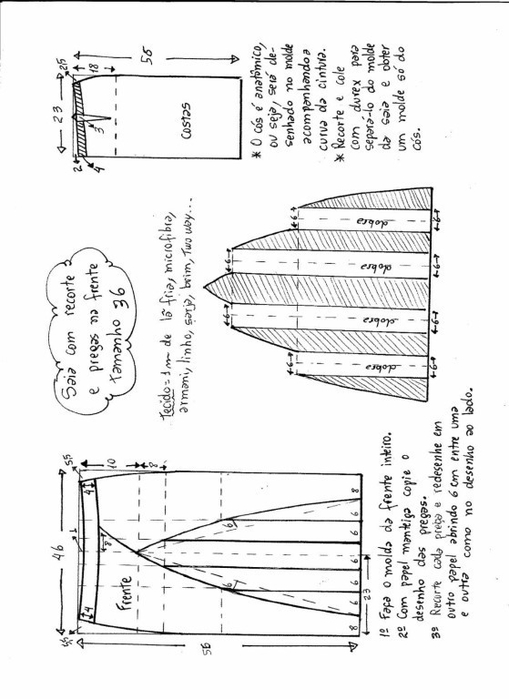 Saia com recorte
e pregas na frente
tamanho 36
Tecido=1m de lã fria, microfibra,
armani, linho, brim, two way...
46
55
55
1
4
4
10
8
8
Frente
56
6
6
6
6
6
6
8
8
23
1º Faça o molde da frente inteiro.
2º Com papel manteiga copie o
desenho das pregas.
3º Recorte cada prega e redesenhe em
outro papel abrindo 6 cm entre uma
e outra como no desenho ao lado.
dobra
dobra
dobra
dobra
6
6
6
6
6
6
6
6
23
25
2
4
3
18
56
costas
* O cós é anatômico,
ou seja, será de-
senhado no molde
acompanhando a
curva da cintura.
* Recorte e cole
com durex para
separá-lo do molde
da saia e obter
um molde só do
cós.